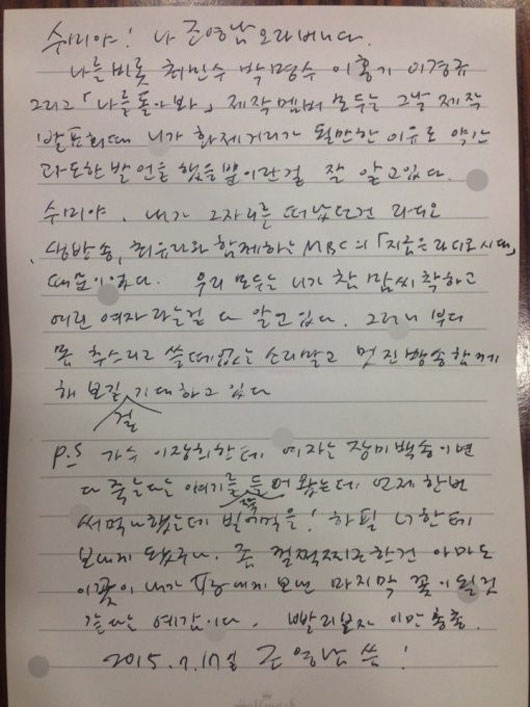 수미야! 나 조영남 오라버니다.
나를 비롯 최민수 박명수 이홍기 이경규
그리고「나를 돌아봐」제작멤버 모두는 그날 제작
발표회때 니가 화제거리가 될만한 이유로 약간은
과도한 발언을 했을뿐이란걸 잘 알고있다.
수미야. 내가 그자리를 떠났던건 라디오
생방송, 최유라와 함께하는 MBC의「지금은 라디오시대」
때문이었다. 우리 모두는 니가 참 맘씨 착하고
여린 여자라는걸 다 알고 있다. 그러니 부디
몸 추스리고 쓸데없는 소리말고 멋진방송 함께
해 보길 기대하고 있다
걸
P.S 가수 이장희한테 여자는 장미백송이면
다 죽는다는 얘기를 들어 왔는데 언제 한번
써먹나했는데 빌어먹을! 하필 너한테
보내게 됐구나. 좀 껄쩍찌근한건 아마도
이꽃이 내가 여자에게 보낸 마지막 꽃이 될것
같다는 예감이다. 빨리보자 이만 총총.
2015.7.17일 조영남 씀!